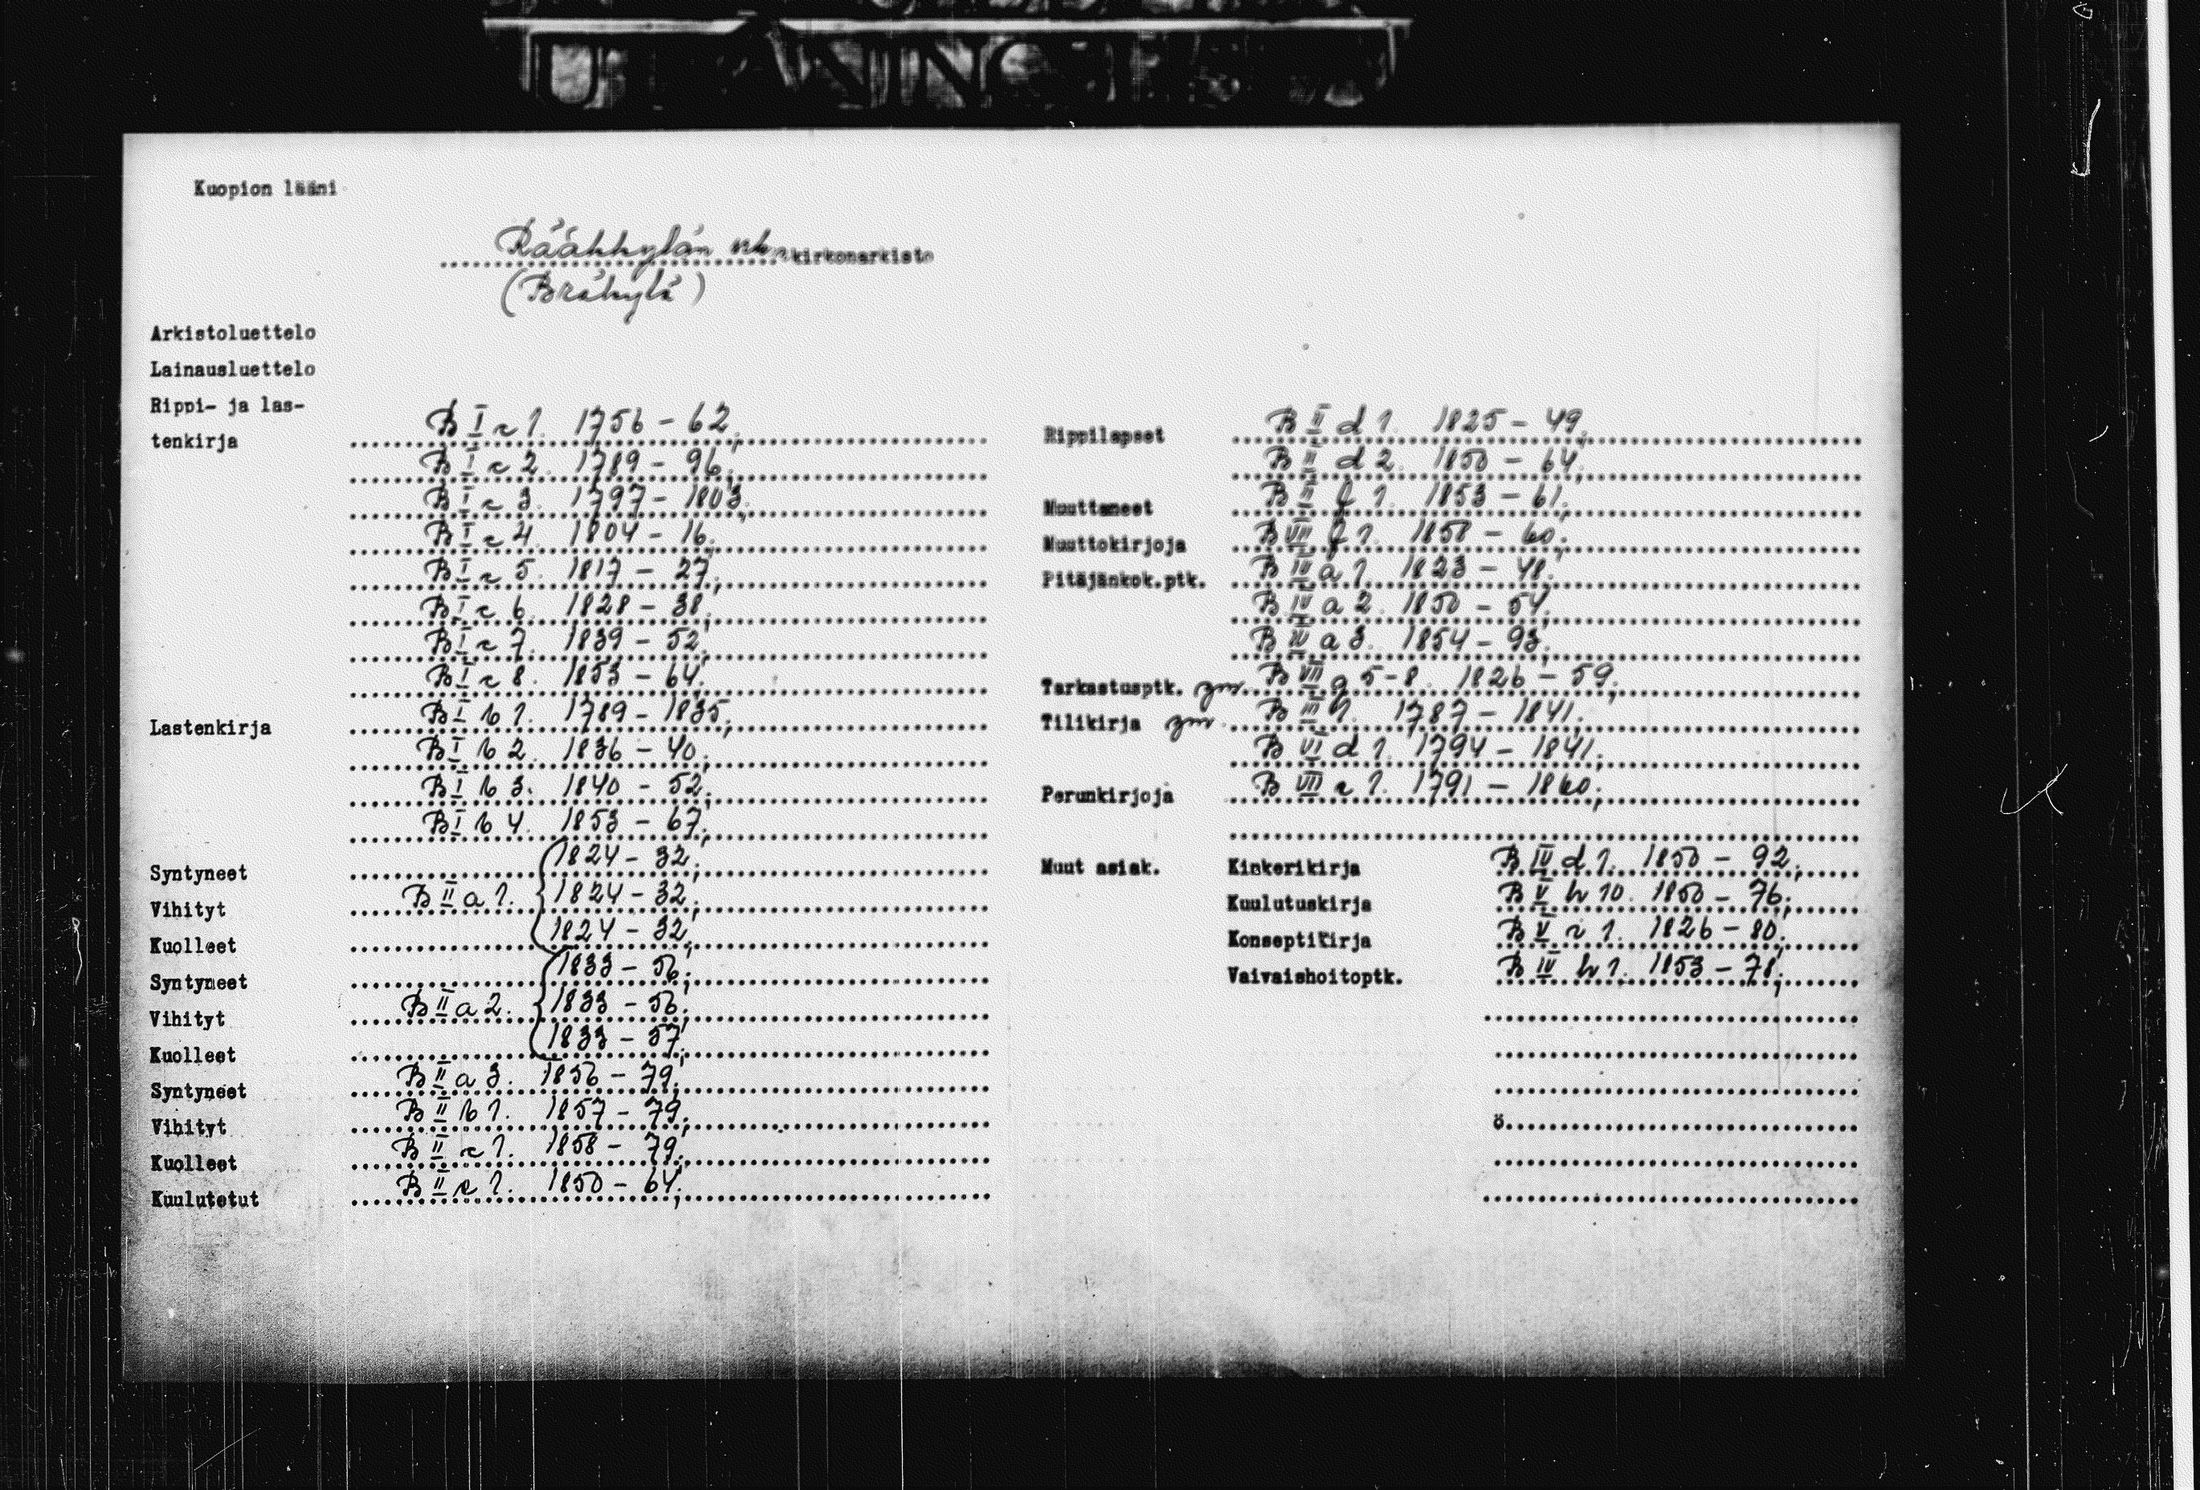 Kuopion lääni
Rääkkylän srk:n kirkonarkisto
(Bräkylä)
Arkistoluettelo
Lainausluettelo
Rippi- ja las-
tenkirja B I a 1. 1756 - 62;
B I a 2. 1789 - 96;
B I a 3. 1797 - 1803;
B I a 4. 1804 - 16;
B I a 5. 1817 - 27;
B I a 6. 1828 - 38;
B I a 7. 1839 - 52;
B I a 8. 1853 - 64;
Lastenkirja B I b 1. 1789 - 1835;
B I b 2. 1836 - 40;
B I b 3. 1840 - 52;
B I b 4. 1853 - 67;
Syntyneet 1824 - 32;
Vihityt B II a 1. 1824 - 32;
Kuolleet 1824 - 32;
Syntyneet 1833 - 56;
Vihityt B II a 2. 1833 - 56;
Kuolleet 1833 - 57;
Syntyneet B II a 3. 1856 - 79;
Vihityt B II b 1. 1857 - 79;
Kuolleet B II c 1. 1858 - 79;
Kuulutetut B II e 1. 1850 - 64;
Rippilapset B II d 1. 1825 - 49;
B II d 2. 1850 - 64;
Muuttaneet B II f 1. 1853 - 61;
Muuttokirjoja B VII f 1. 1858 - 60;
Pitäjänkok.ptk. B IV a 1. 1823 - 48;
B IV a 2. 1850 - 54;
B IV a 3. 1854 - 93;
Tarkastusptk. ym. B VII g 5-8. 1826 - 59;
Tilikirja ym. B III 1. 1787 - 1841;
B VI d 1. 1794 - 1841;
Perunkirjoja B VII c 1. 1791 - 1860;
Muut asiak. Kinkerikirja B IV d 1. 1850 - 92;
Kuulutuskirja B V h 10. 1850 - 76;
Konseptikirja B V c 1. 1826 - 80;
Vaivaishoitoptk. B IV h 1. 1853 - 78;
ö